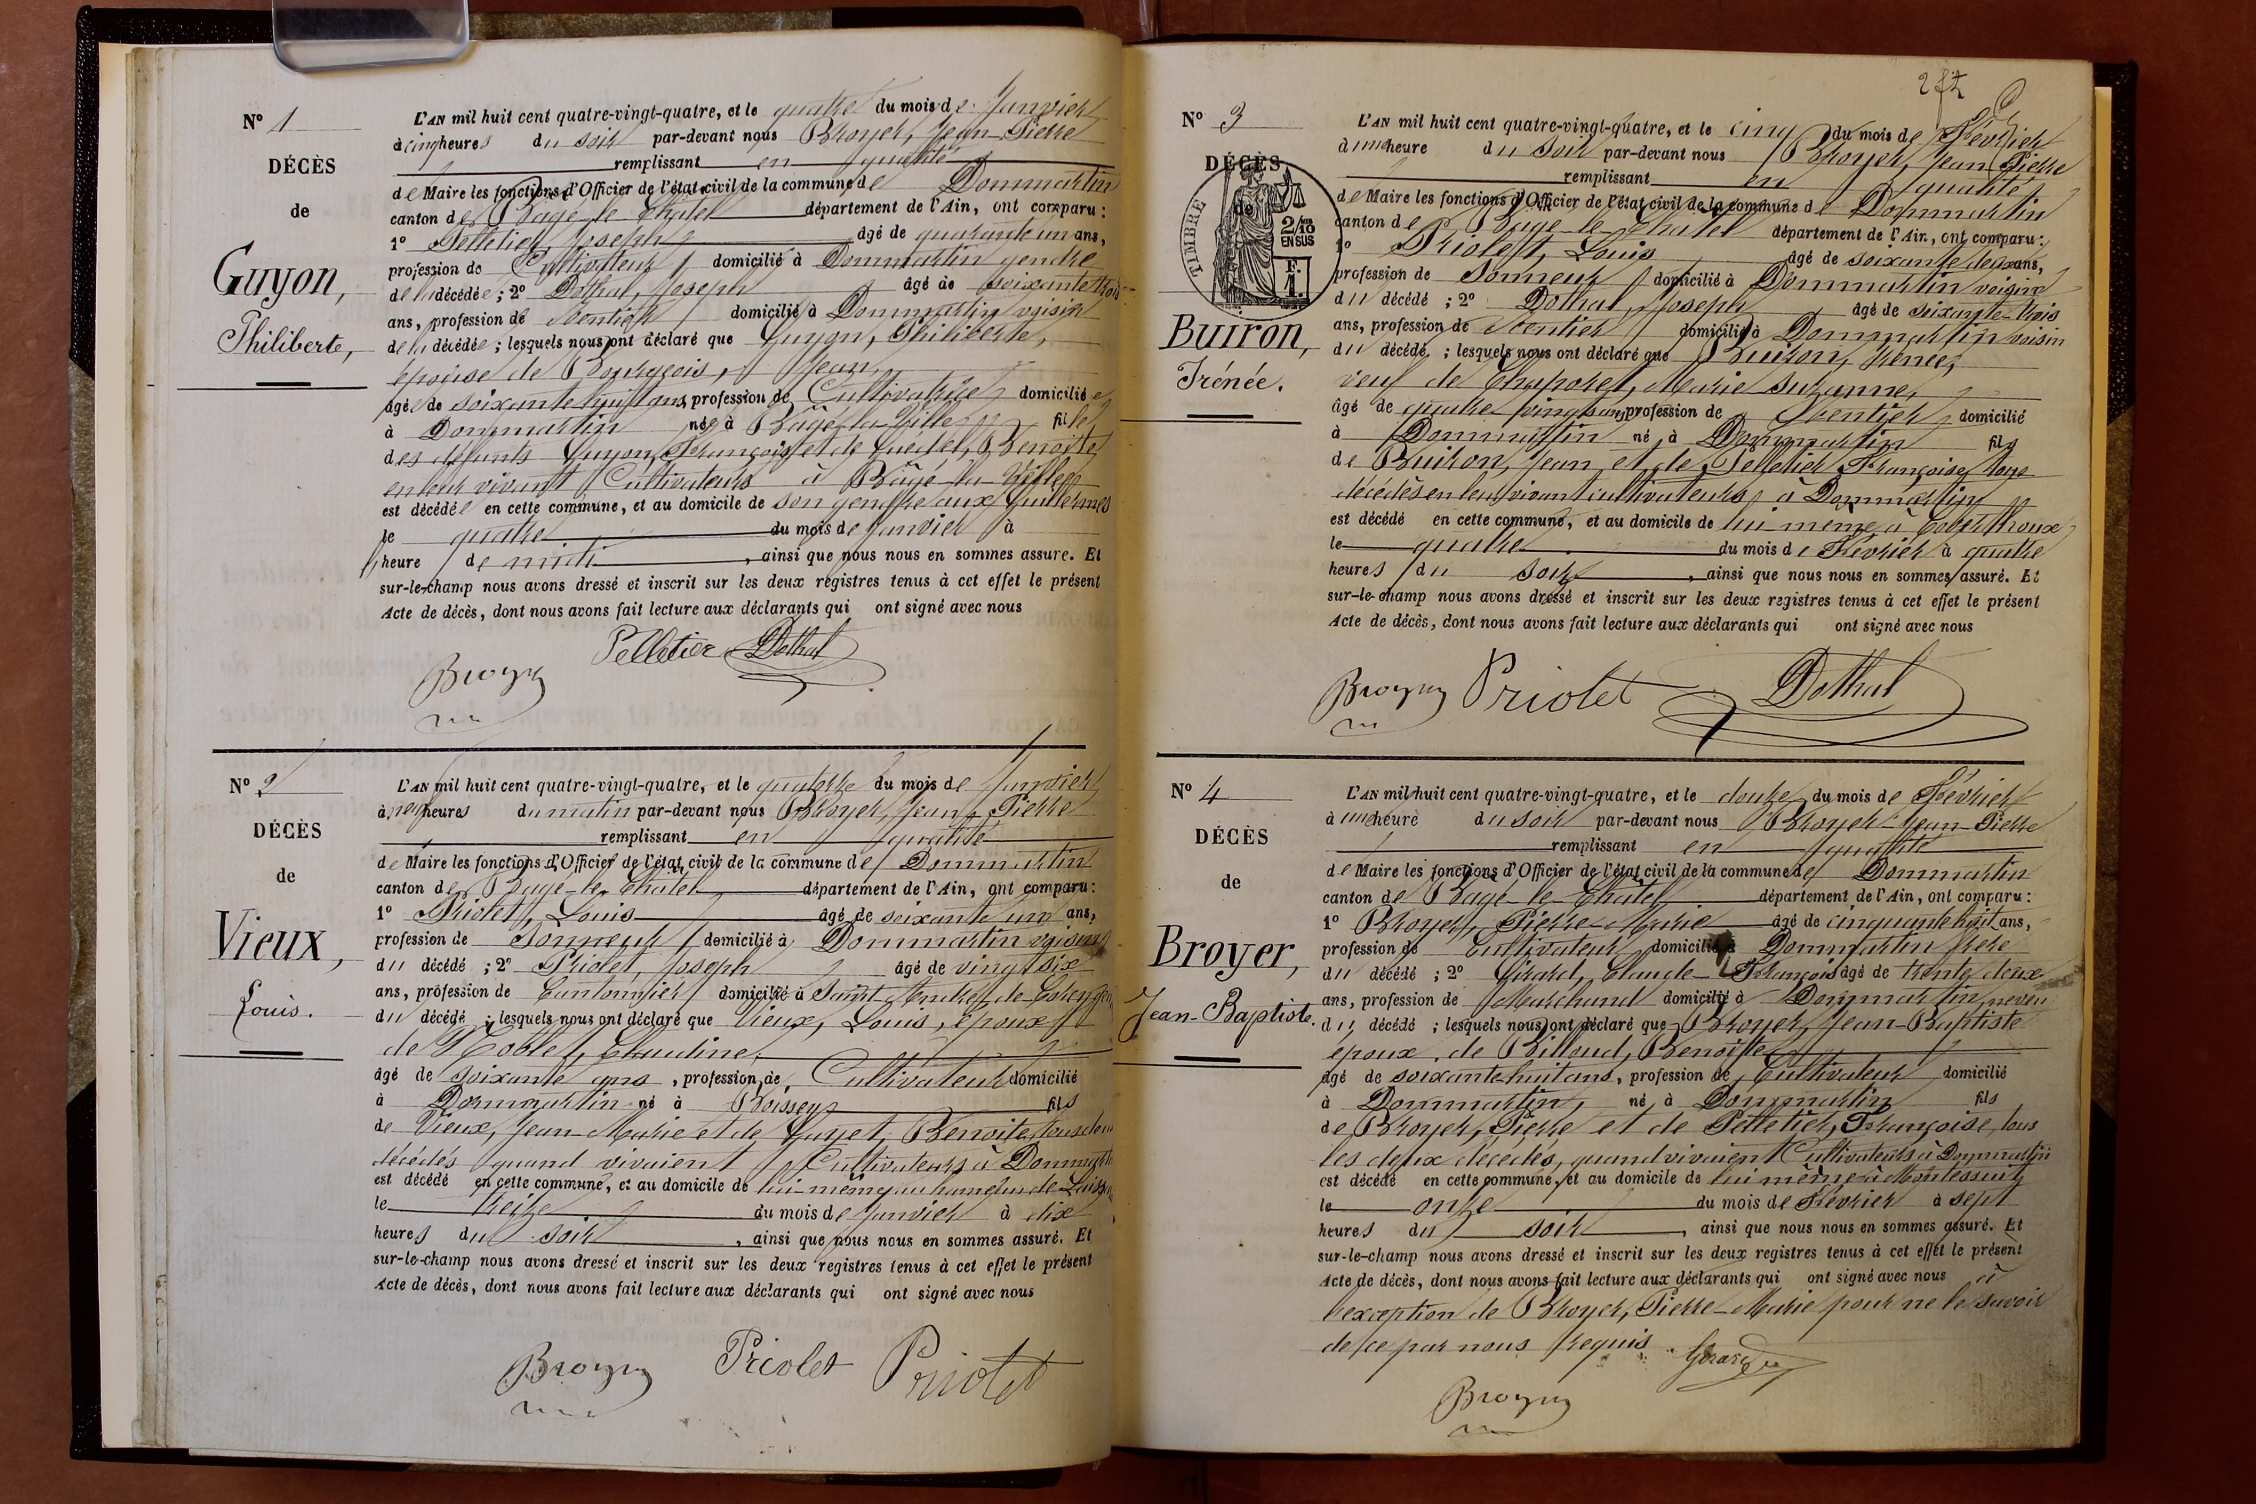 Nº 1
DÉCÈS
de
Guyon,
Philiberte,
L'AN mil huit cent quatre-vingt-quatre, et le quatre du mois de Janvier
à cinq heures du soir par-devant nous Broyer, Jean-Pierre
remplissant en qualité
de Maire les fonctions d'Officier de l'état civil de la commune de Dommartin
canton de Bagé-le-Chatel département de l'Ain, ont comparu :
1º Pelletier, Joseph âgé de quarante un ans,
profession de Cultivateur domicilié à Dommartin gendre
de la décédée ; 2º Dothal, Joseph âgé de soixante trois
ans, profession de Rentier domicilié à Dommartin voisin
de la décédée ; lesquels nous ont déclaré que Guyon, Philiberte,
épouse de Bourgeois, Jean,
âgée de soixante huit ans, profession de Cultivatrice domiciliée
à Dommartin née à Bâgé-la-Ville fille
des défunts Guyon, François et de Benoite
en leur vivant Cultivateurs à Bâgé-la-Ville
est décédée en cette commune, et au domicile de son gendre aux Guillermes
le quatre du mois de Janvier à
heure de midi, ainsi que nous nous en sommes assuré. Et
sur-le-champ nous avons dressé et inscrit sur les deux registres tenus à cet effet le présent
Acte de décès, dont nous avons fait lecture aux déclarants qui ont signé avec nous
Broyer Pelletier Dothal
Nº 2
DÉCÈS
de
Vieux,
Louis.
L'AN mil huit cent quatre-vingt-quatre, et le quatorze du mois de Janvier
à neuf heures du matin par-devant nous Broyer, Jean-Pierre
remplissant en qualité
de Maire les fonctions d'Officier de l'état civil de la commune de Dommartin
canton de Bagé-le-Chatel département de l'Ain, ont comparu :
1º Priolet, Louis âgé de soixante un ans,
profession de Sonneur domicilié à Dommartin voisin
du décédé ; 2º Priolet, Joseph âgé de vingt six
ans, profession de Cantonnier domicilié à Saint André de
du décédé ; lesquels nous ont déclaré que Vieux, Louis, époux
de Noblet, Claudine,
âgé de soixante ans, profession de Cultivateur domicilié
à Dommartin né à Boissey fils
de Vieux, Jean-Marie et de Guyet, Benoite, tous deux
décédés quand vivaient Cultivateurs à Dommartin
est décédé en cette commune, et au domicile de lui-même au hameau de
le treize du mois de Janvier à dix
heures du soir, ainsi que nous nous en sommes assuré. Et
sur-le-champ nous avons dressé et inscrit sur les deux registres tenus à cet effet le présent
Acte de décès, dont nous avons fait lecture aux déclarants qui ont signé avec nous
Broyer Priolet Priolet
Nº 3
DÉCÈS
de
TIMBRE
2/10 EN SUS
F. 1.
Buiron,
Irénée.
L'AN mil huit cent quatre-vingt-quatre, et le cinq du mois de Février
à une heure du soir par-devant nous Broyer, Jean Pierre
remplissant en qualité
de Maire les fonctions d'Officier de l'état civil de la commune de Dommartin
canton de Bage-le-Chatel département de l'Ain, ont comparu :
1º Priolet, Louis âgé de soixante deux ans,
profession de Sonneur domicilié à Dommartin voisin
du décédé ; 2º Dothal, Joseph âgé de soixante-trois
ans, profession de Rentier domicilié à Dommartin voisin
du décédé ; lesquels nous ont déclaré que Buiron, Irénée,
veuf de Marie Suzanne,
âgé de quatre vingts ans, profession de Rentier domicilié
à Dommartin né à Dommartin fils
de Buiron, Jean et de Pelletier Françoise tous
décédés en leur vivant cultivateurs à Dommartin
est décédé en cette commune, et au domicile de lui même à
le quatre du mois de Février à quatre
heures du soir, ainsi que nous nous en sommes assuré. Et
sur-le-champ nous avons dressé et inscrit sur les deux registres tenus à cet effet le présent
Acte de décès, dont nous avons fait lecture aux déclarants qui ont signé avec nous
Broyer Priolet Dothal
Nº 4
DÉCÈS
de
Broyer,
Jean-Baptiste.
L'AN mil huit cent quatre-vingt-quatre, et le douze du mois de Février
à une heure du soir par-devant nous Broyer Jean-Pierre
remplissant en qualité
de Maire les fonctions d'Officier de l'état civil de la commune de Dommartin
canton de Bagé-le-Chatel département de l'Ain, ont comparu :
1º Broyer, Pierre-Marie âgé de cinquante huit ans,
profession de Cultivateur domicilié à Dommartin frère
du décédé ; 2º Girard, Claude-François âgé de trente deux
ans, profession de Marchand domicilié à Dommartin, neveu
du décédé ; lesquels nous ont déclaré que Broyer, Jean-Baptiste
époux de Billoud, Benoite
âgé de soixante huit ans, profession de Cultivateur domicilié
à Dommartin, né à Dommartin fils
de Broyer, Pierre et de Pelletier, Françoise, tous
les deux décédés, quand vivaient Cultivateurs à Dommartin
est décédé en cette commune, et au domicile de lui même à Montessuit
le onze du mois de Février à sept
heures du soir, ainsi que nous nous en sommes assuré. Et
sur-le-champ nous avons dressé et inscrit sur les deux registres tenus à cet effet le présent
Acte de décès, dont nous avons fait lecture aux déclarants qui ont signé avec nous à
l'exception de Broyer, Pierre-Marie pour ne le savoir
de ce par nous requis.
Girard
Broyer